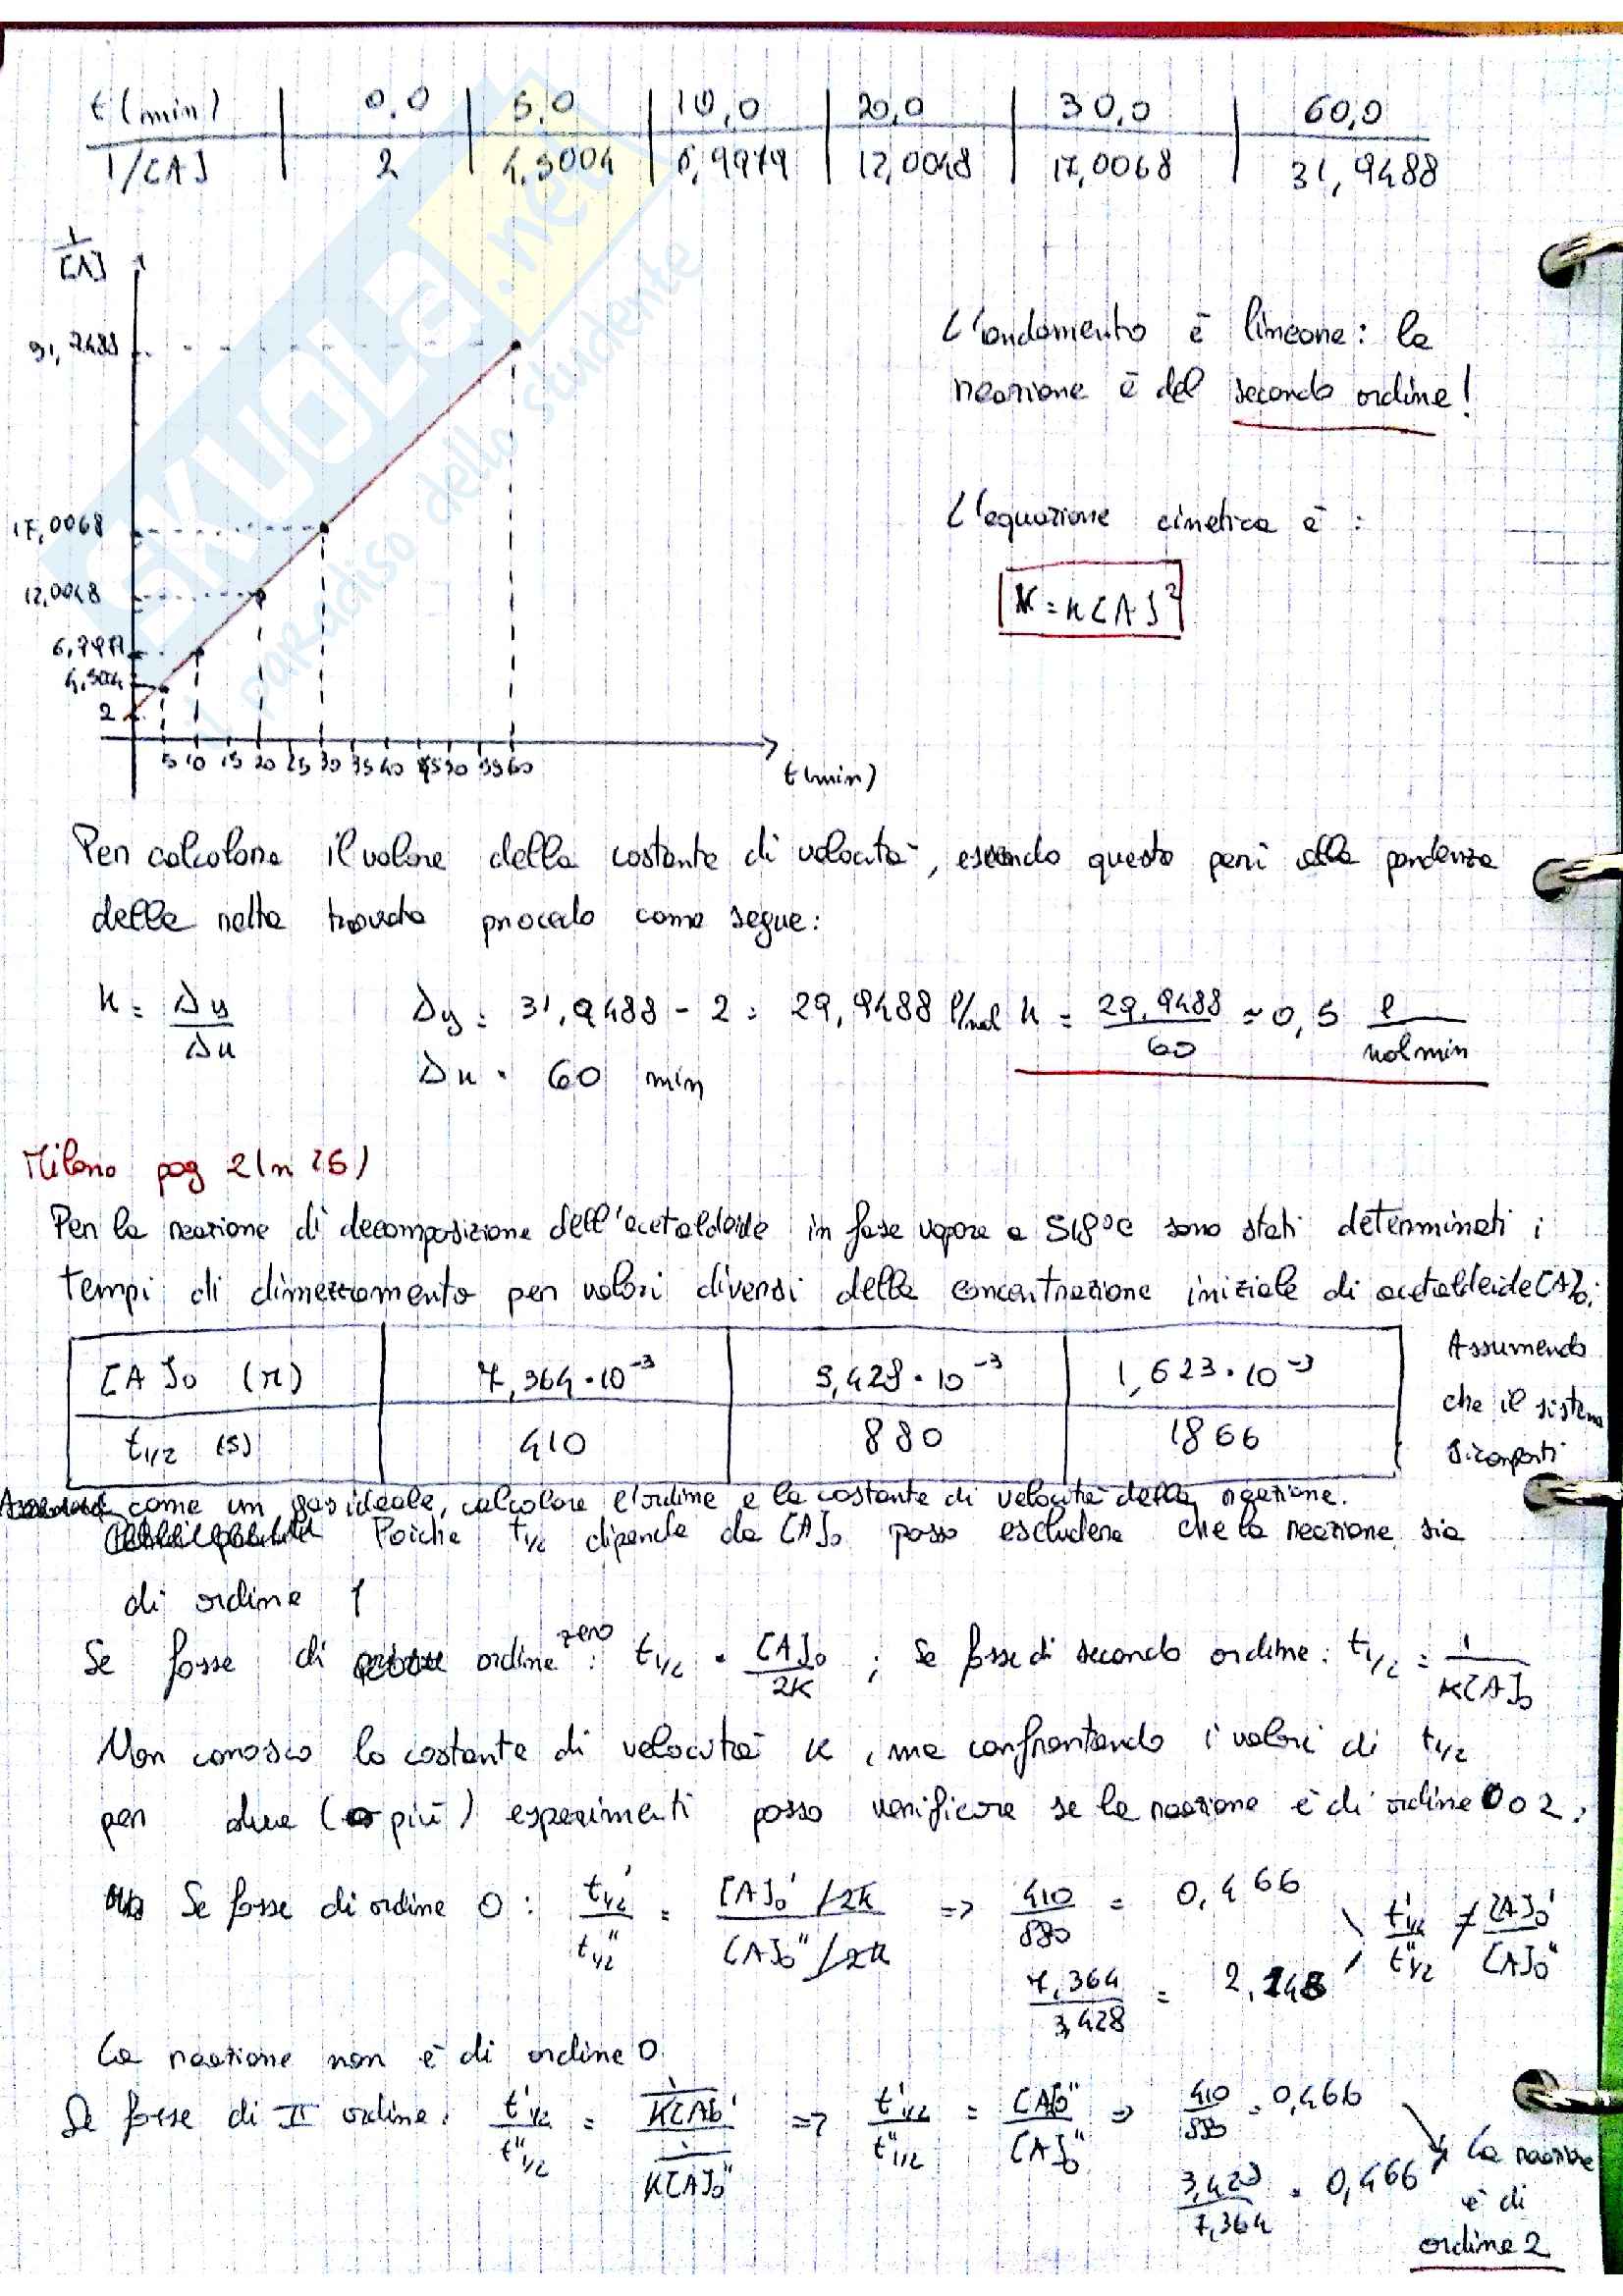 t(min) | 0.0 | 5,0 | 10,0 | 20,0 | 30,0 | 60,0
1/[A] | 2 | 4,5004 | 6,9979 | 12,0048 | 17,0068 | 31,9488
1/[A]
31,9488
17,0068
12,0048
6,9979
4,5004
2
5 10 15 20 25 30 35 40 45 50 55 60
t(min)
L'andamento è lineare: la
reazione è del secondo ordine!
L'equazione cinetica è :
v = k[A]²
Per calcolare il valore della costante di velocità, essendo questa pari alla pendenza
della retta trovata procedo come segue:
k = Δy/Δx Δy = 31,9488 - 2 = 29,9488 l/mol k = 29,9488/60 ≈ 0,5 l/mol min
Δx = 60 min
Milano pag 2(n 26)
Per la reazione di decomposizione dell'acetaldeide in fase vapore a 518°C sono stati determinati i
tempi di dimezzamento per valori diversi della concentrazione iniziale di acetaldeide [A]₀:
[A]₀ (M) | 7,364·10⁻³ | 3,428·10⁻³ | 1,623·10⁻³
t1/2 (s) | 410 | 880 | 1866
Assumendo
che il sistema
si comporti
come un gas ideale, calcolare l'ordine e la costante di velocità della reazione.
Poiché t1/2 dipende da [A]₀ posso escludere che la reazione sia
di ordine 1
Se fosse di ordine zero: t1/2 = [A]₀/2K ; Se fosse di secondo ordine: t1/2 = 1/K[A]₀
Non conosco la costante di velocità K, ma confrontando i valori di t1/2
per due (o più) esperimenti posso verificare se la reazione è di ordine 0 o 2.
Se fosse di ordine 0: t'1/2/t''1/2 = [A]₀'/2K / [A]₀''/2K => 410/880 = 0,466 t'1/2/t''1/2 ≠ [A]₀'/[A]₀''
7,364/3,428 = 2,148
La reazione non è di ordine 0
Se fosse di II ordine: t'1/2/t''1/2 = 1/K[A]₀' / 1/K[A]₀'' => t'1/2/t''1/2 = [A]₀''/[A]₀'' => 410/880 = 0,466
3,428/7,364 = 0,466
La reazione
è di
ordine 2
SKUOLA.net
il paradiso dello studente